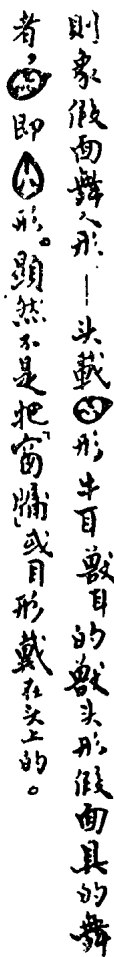 則象假面舞人形—头載形牛耳獸耳的獸头形假面具的舞
者，即形。顯然不是把「窗牖」或目形戴在头上的。